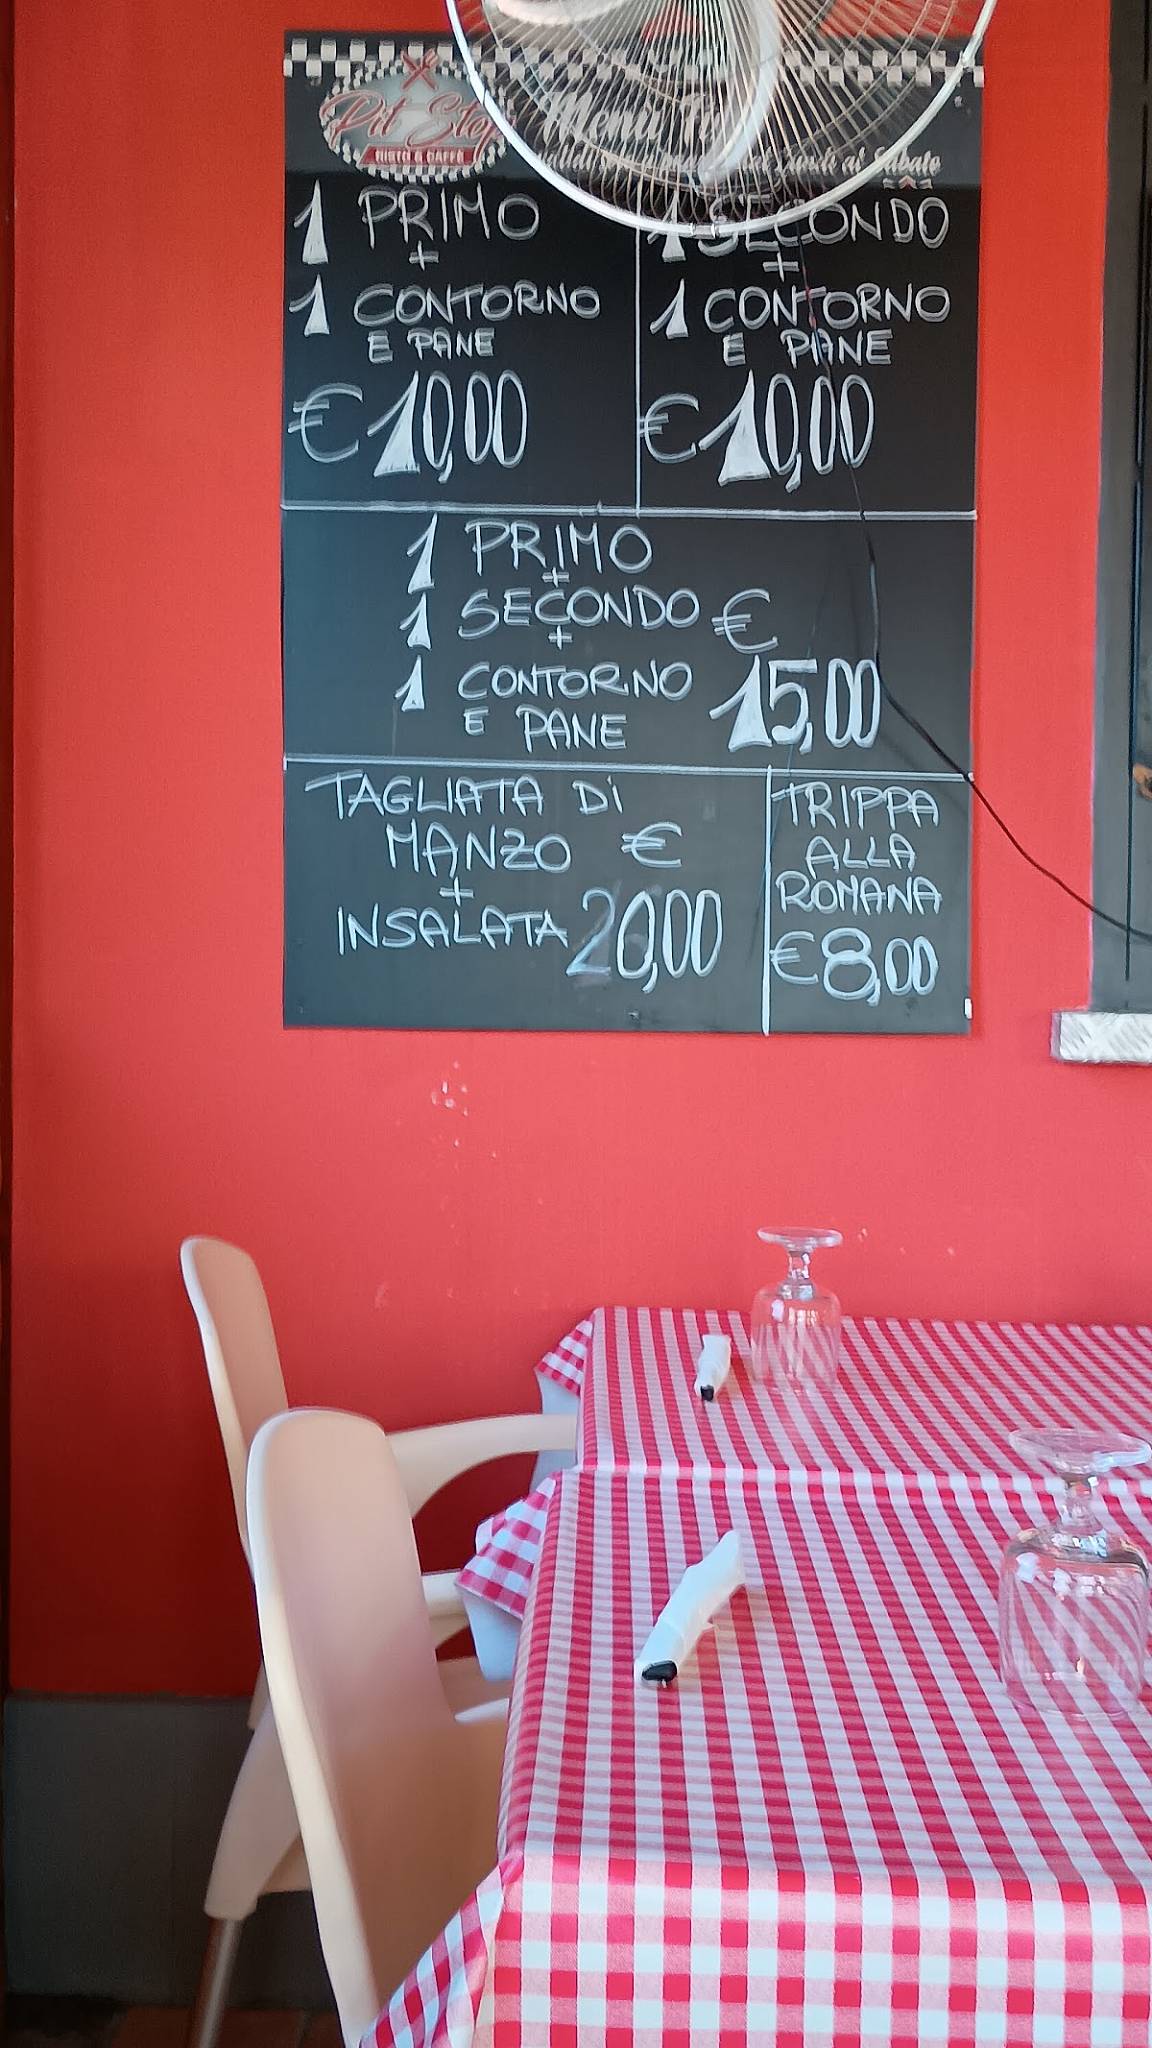 Pit Stop
RISTO & CAFFÈ
Menù
Lunedì al Sabato
1 PRIMO
+
1 CONTORNO
E PANE
€ 10,00
1 SECONDO
+
1 CONTORNO
E PANE
€ 10,00
1 PRIMO
+
1 SECONDO
+
1 CONTORNO
E PANE
€
15,00
TAGLIATA Di
MANZO €
+
INSALATA 20,00
TRIPPA
ALLA
ROMANA
€ 8,00